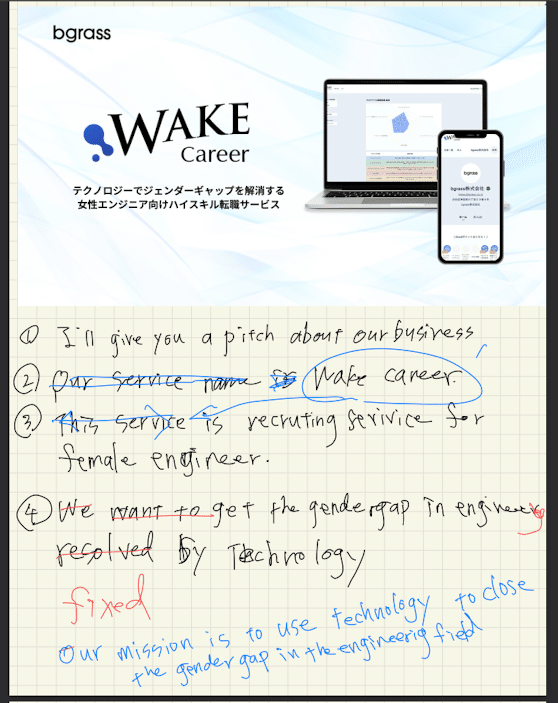 bgrass
WAKE
Career
テクノロジーでジェンダーギャップを解消する
女性エンジニア向けハイスキル転職サービス
bgrass
bgrass株式会社
① I'll give you a pitch about our business
② Our service name is Wake career.
③ This service is recruting serivice for
female engineer.
④ We want to get the gendergap in engineering
resolved by Technology
fixed
Our mission is to use technology to close
the gender gap in the engineerig field